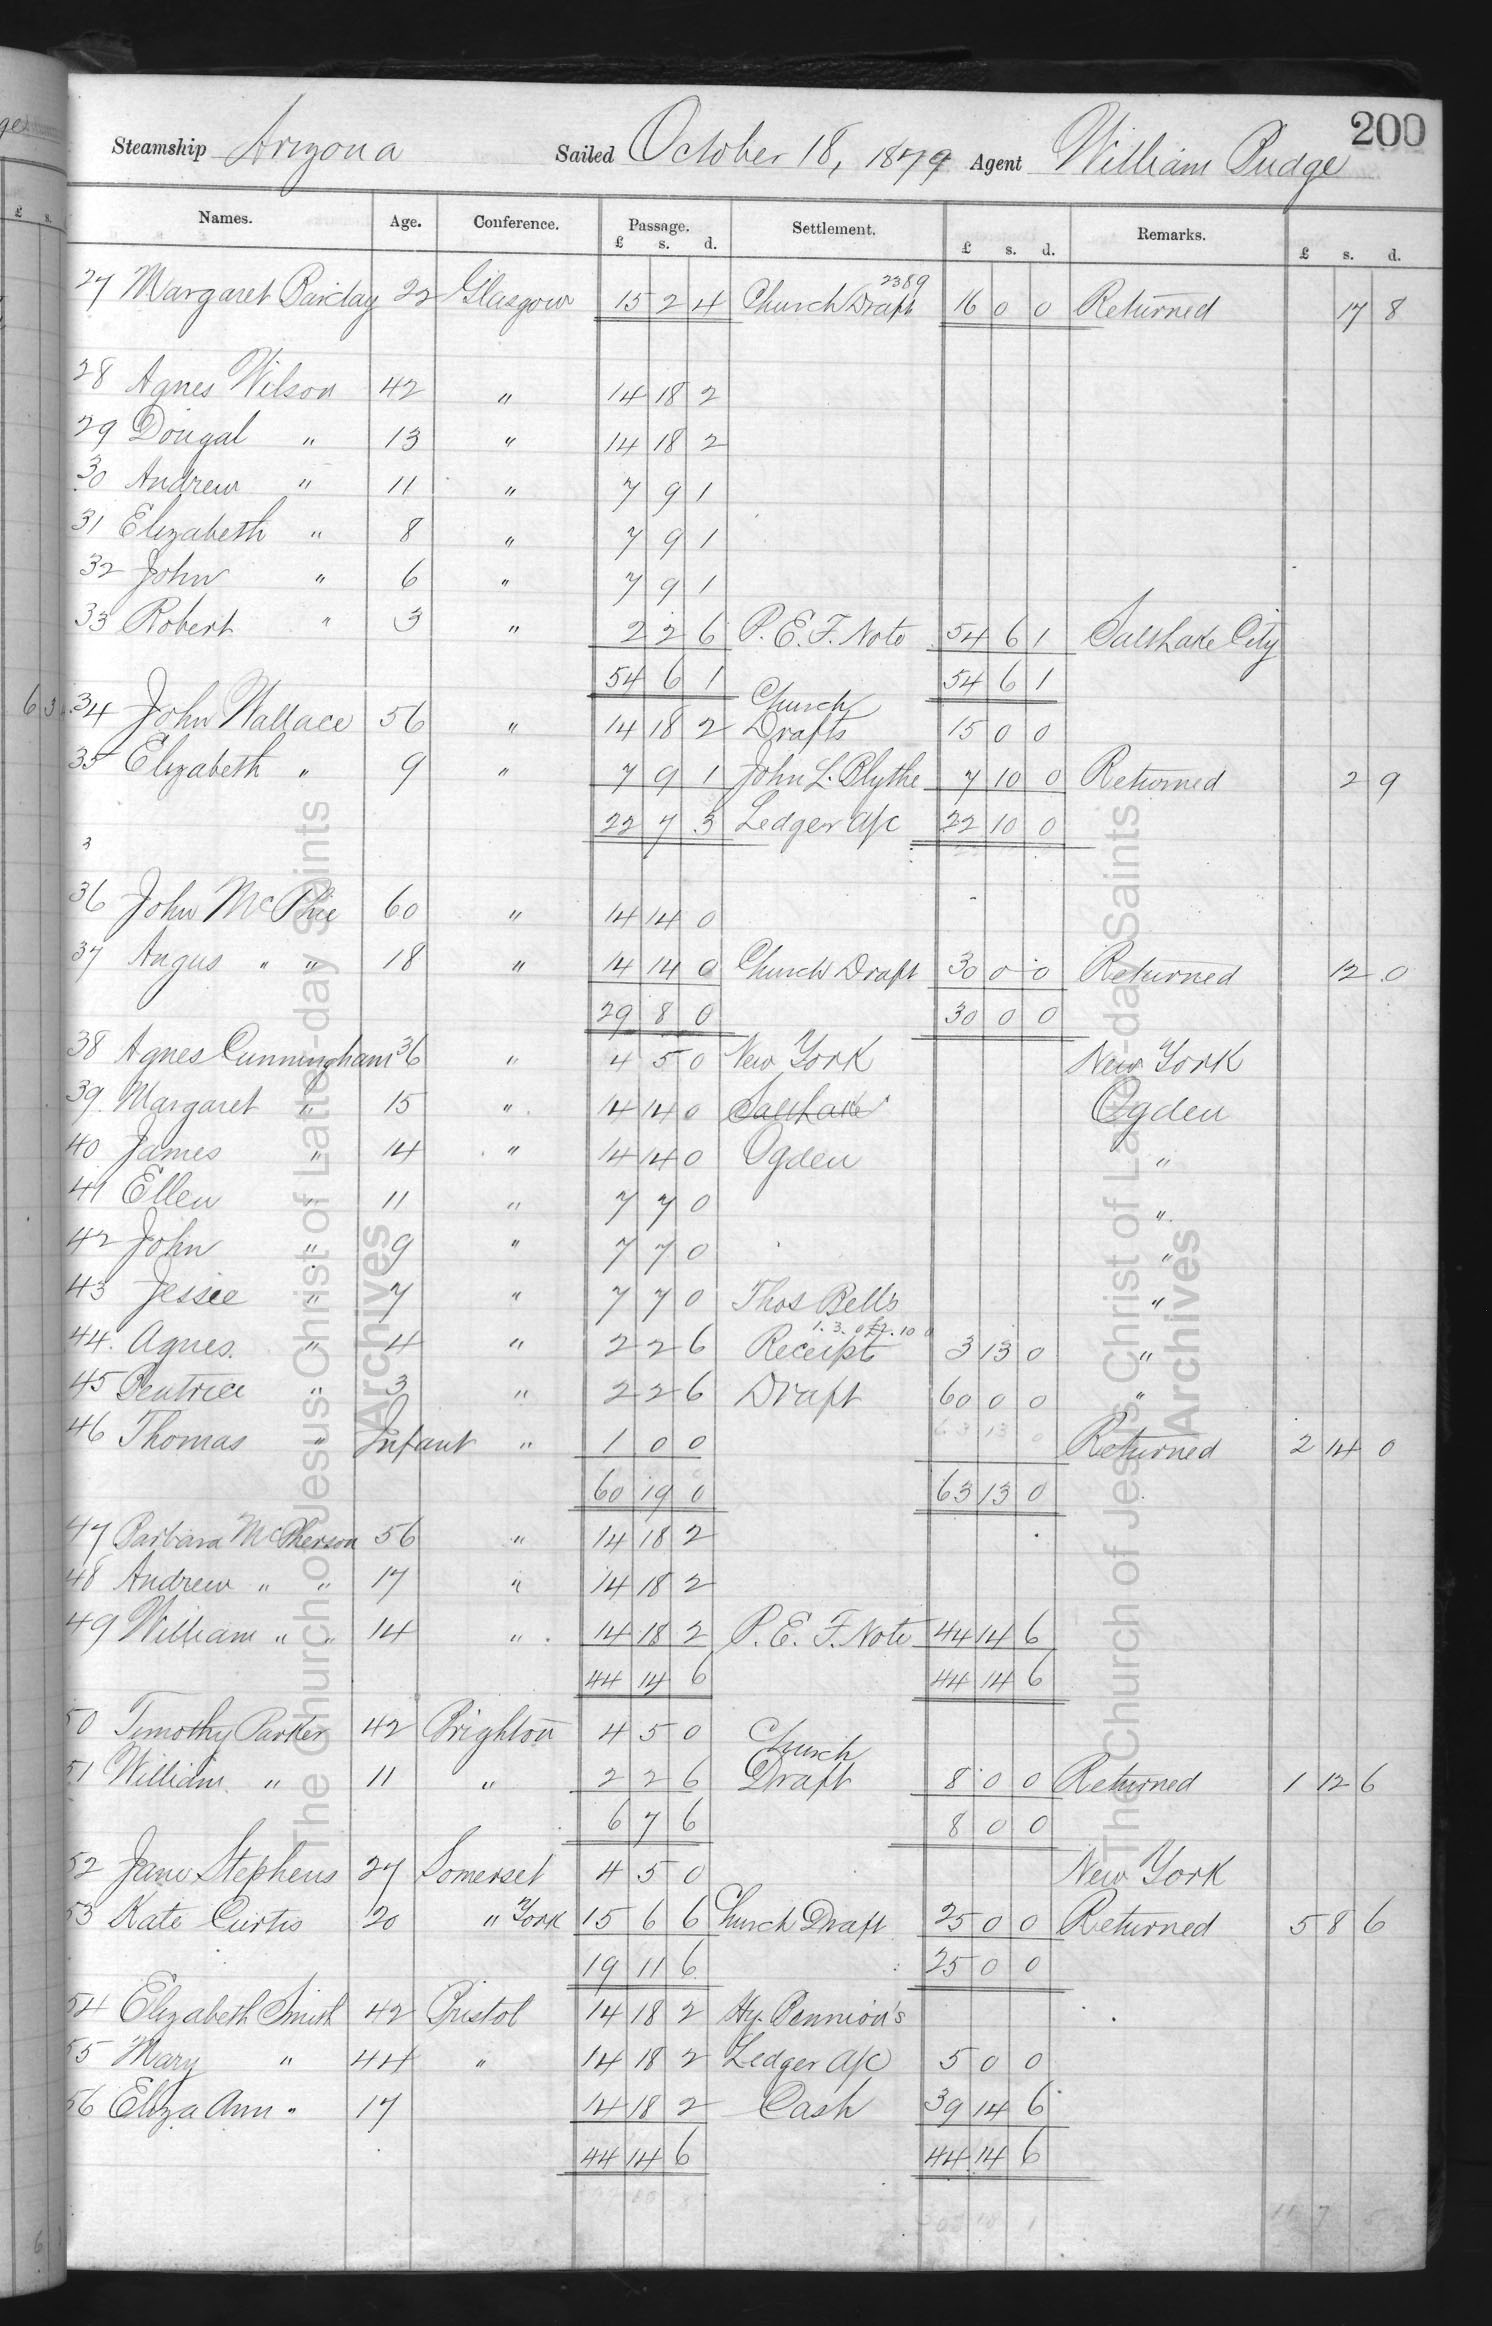 200
Steamship Arizona Sailed October 18, 1879 Agent William Budge
Names. Age. Conference. Passage. Settlement. Remarks.
£ s. d. £ s. d. £ s. d.
2389
27 Margaret Barclay 22 Glasgow 15 2 4 Church Draft 16 0 0 Returned 17 8
28 Agnes Wilson 42 " 14 18 2
29 Dougal " 13 " 14 18 2
30 Andrew " 11 " 7 9 1
31 Elizabeth " 8 " 7 9 1
32 John " 6 " 7 9 1
33 Robert " 3 " 2 2 6 P. E. F. Note 54 6 1 Salt Lake City
54 6 1 54 6 1
Church
34 John Wallace 56 " 14 18 2 Drafts 15 0 0
35 Elizabeth " 9 " 7 9 1 John L. Blythe 7 10 0 Returned 2 9
22 7 3 Ledger a/c 22 10 0
3
36 John McPhie 60 " 14 14 0
37 Angus " " 18 " 14 14 0 Church Draft 30 0 0 Returned 12 0
29 8 0 30 0 0
38 Agnes Cunningham 36 " 4 5 0 New York New York
39 Margaret " 15 " 14 14 0 Salt Lake Ogden
40 James " 14 " 14 14 0 Ogden "
41 Ellen " 11 " 7 7 0 "
42 John " 9 " 7 7 0 "
43 Jessie " 7 " 7 7 0 Thos Bell's "
1. 3. 0 £2. 10 0
44. Agnes " 4 " 2 2 6 Receipts 3 13 0 "
45 Beatrice " 3 " 2 2 6 Draft 60 0 0 "
63 13 0
46 Thomas " Infant " 1 0 0 Returned 2 14 0
60 19 0 63 13 0
47 Barbara McPherson 56 " 14 18 2
48 Andrew " " 17 " 14 18 2
49 William " " 14 " 14 18 2 P. E. F. Note 44 14 6
44 14 6 44 14 6
50 Timothy Parker 42 Brighton 4 5 0 Church
51 William " 11 " 2 2 6 Draft 8 0 0 Returned 1 12 6
6 7 6 8 0 0
52 Jane Stephens 27 Somerset 4 5 0 New York
53 Kate Curtis 20 " York 15 6 6 Church Draft 25 0 0 Returned 5 8 6
19 11 6 25 0 0
54 Elizabeth Smith 42 Bristol 14 18 2 Hy. Bennion's
55 Mary " 44 " 14 18 2 Ledger a/c 5 0 0
56 Eliza Ann " 17 14 18 2 Cash 39 14 6
44 14 6 44 14 6
The Church of Jesus Christ of Latter-day Saints
Archives
The Church of Jesus Christ of Latter-day Saints
Archives